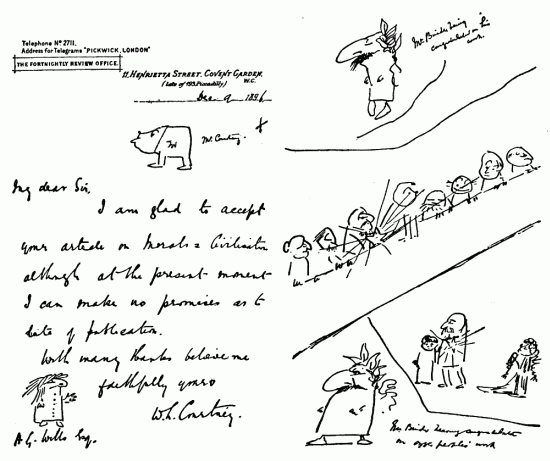 Telephone Nº 2711.
Address for Telegrams "PICKWICK, LONDON"
THE FORTNIGHTLY REVIEW OFFICE.
11, HENRIETTA STREET, COVENT GARDEN,
W.C.
(Late of 193, Piccadilly)
Dec. 9 1896
Mr. Courtney.
My dear Sir,
I am glad to accept
your article on Morals & Civilisation
although at the present moment
I can make no promises as to
date of publication.
With many thanks believe me
faithfully yours
W. L. Courtney.
A G. Wells Esq.
Mr. Binder being
congratulated on his
work.
Mr Binder
on other people's work